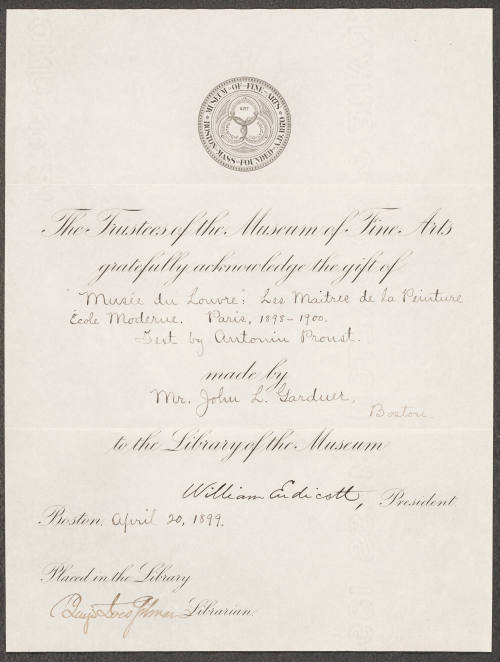 MUSEUM-OF-FINE-ARTS
BOSTON-MASS-FOUNDED-A.D.1870
ART
The Trustees of the Museum of Fine Arts
gratefully acknowledge the gift of
"Musée du Louvre": Les Maitres de la Peinture
École Moderne. Paris, 1898-1900.
Text by Antonin Proust.
made by
Mr. John L. Gardner,
Boston.
to the Library of the Museum
William Endicott, President.
Boston, April 20, 1899.
Placed in the Library
Librarian.